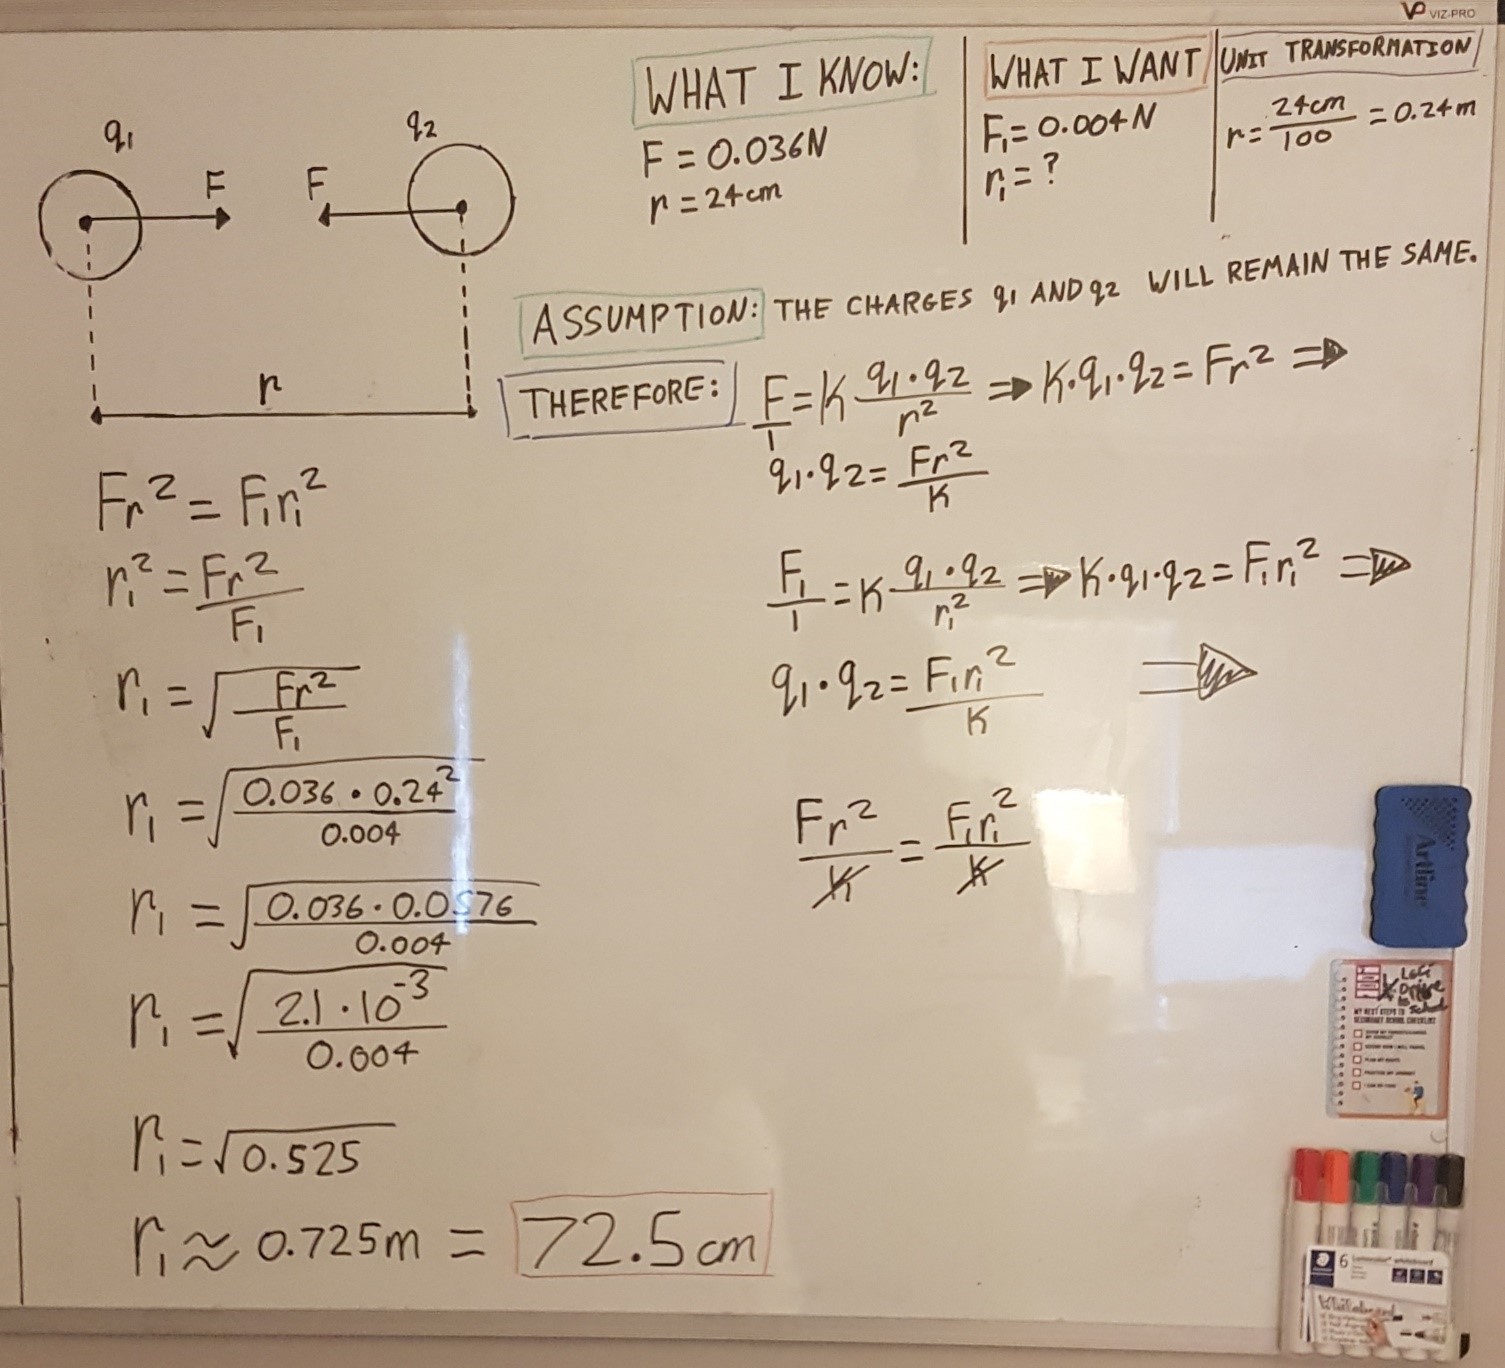 VIZ-PRO
WHAT I KNOW:
F = 0.036N
r = 24cm
WHAT I WANT
F₁ = 0.004N
r₁ = ?
UNIT TRANSFORMATION
r = 24cm/100 = 0.24m
q1
q2
F
F
r
ASSUMPTION: THE CHARGES q1 AND q2 WILL REMAIN THE SAME.
THEREFORE: F/1 = K q1·q2/r² ⇒ K·q1·q2 = Fr² ⇒
q1·q2 = Fr²/K
F₁/1 = K q1·q2/r₁² ⇒ K·q1·q2 = F₁r₁² ⇒
q1·q2 = F₁r₁²/K ⇒
Fr²/K = F₁r₁²/K
Fr² = F₁r₁²
r₁² = Fr²/F₁
r₁ = √(Fr²/F₁)
r₁ = √(0.036 · 0.24²/0.004)
r₁ = √(0.036 · 0.0576/0.004)
r₁ = √(2.1 · 10⁻³/0.004)
r₁ = √0.525
r₁ ≈ 0.725m = 72.5cm
Artline
MY NEXT STEPS TO
SECONDARY SCHOOL CHECKLIST
STAEDTLER
6 Lumocolor whiteboard
Whiteboard